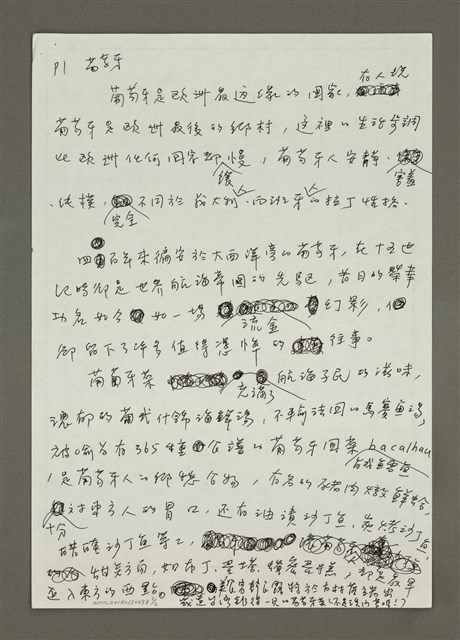 P1 葡萄牙
葡萄牙是歐洲最邊緣的國家,有人說
葡萄牙是歐洲最後的鄉村,這裡的生活步調
比歐洲任何國家都緩慢,葡萄牙人安靜、害羞
、純樸,完全不同於義大利、西班牙的拉丁性格。
四百年來偏安於大西洋旁的葡萄牙,在十五世
紀時卻是世界航海帝國的先驅,昔日的榮華
功名如今如一場流金幻影,但
卻留下了許多值得憑悼的往事。
葡萄牙菜充滿了航海子民的滋味,
濃郁的葡式什錦海鮮湯,不輸法國的馬賽魚湯,
被喻為有365種食譜的葡萄牙國菜bacalhau
是葡萄牙人的鄉愁食物,有名的豬肉燉鮮蛤
十分對東方人的胃口,還有油漬沙丁魚、炭烤沙丁魚、
醋醃沙丁魚等等,
甜點方面,如布丁、蛋塔、蜂蜜蛋糕,都是最早
進入東方的西點。